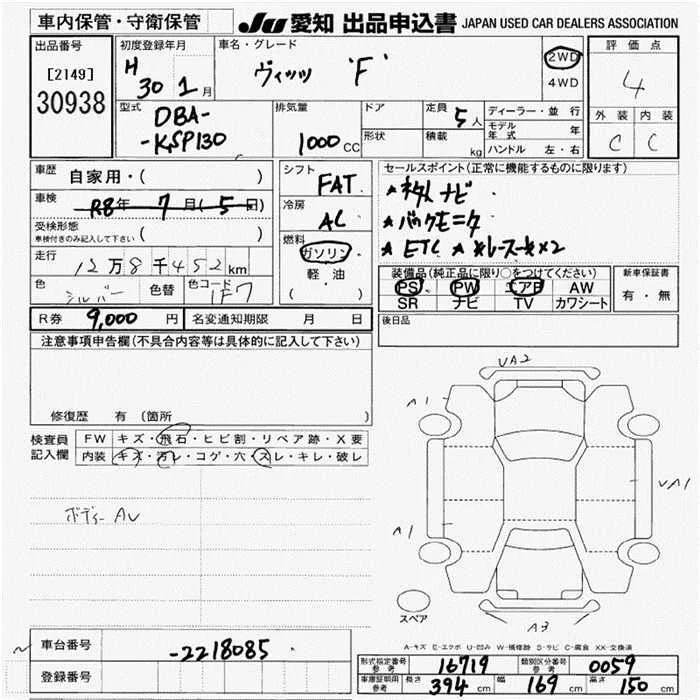 車内保管・守衛保管
JU 愛知 出品申込書 JAPAN USED CAR DEALERS ASSOCIATION
出品番号
[2149]
30938
初度登録年月
H 30 1月
車名・グレード
ヴィッツ 'F'
2WD
4WD
評価点
4
外装 内装
C C
型式
DBA-
-KSP130
排気量
1000 CC
ドア
形状
定員 5人
積載 kg
ディーラー・並行
モデル年式 年
ハンドル 左・右
車歴
自家用・( )
車検
R8年 7月(5日)
受検形態
車検付きのみ記入して下さい ( )
走行
12万8千452km
色
シルバー
色替
色コード
1F7
シフト
FAT
冷房
AC
燃料
ガソリン
軽・油
( )
セールスポイント(正常に機能するものに限ります)
ナビ
ETC
装備品(純正品に限り○をつけてください)
PS PW エアB AW
SR ナビ TV カワシート
新車保証書
有・無
R券 9,000円
名変通知期限 月 日
後日品
注意事項申告欄(不具合内容等は具体的に記入して下さい)
修復歴 有(箇所 )
検査員
記入欄
FW キズ・飛石・ヒビ割・リペア跡・X要
内装 キズ・汚レ・コゲ・穴・スレ・キレ・破レ
ボディー AU
VA2
A1
VA1
A1
A3
スペア
A-キズ E-エクボ U-凹み W-補修跡 S-サビ C-腐食 XX-交換済
車台番号
-2218085
登録番号
形式指定番号
参考
16719
類別区分番号
参考
0059
車庫証明用
参考
長さ 394 cm 幅 169 cm 高さ 150 cm